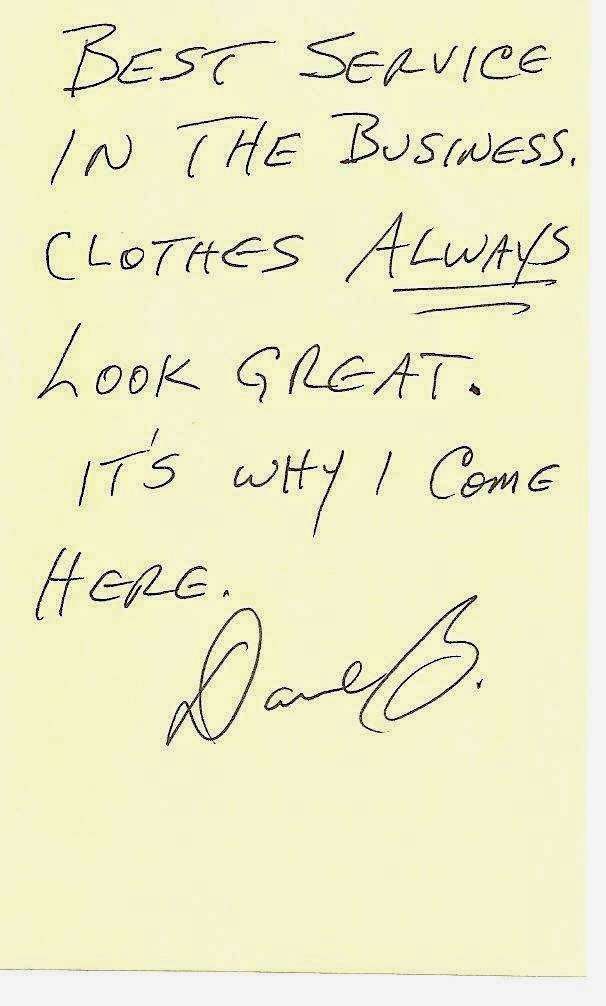 BEST SERVICE
IN THE BUSINESS.
CLOTHES ALWAYS
LOOK GREAT.
IT'S WHY I COME
HERE.
B.